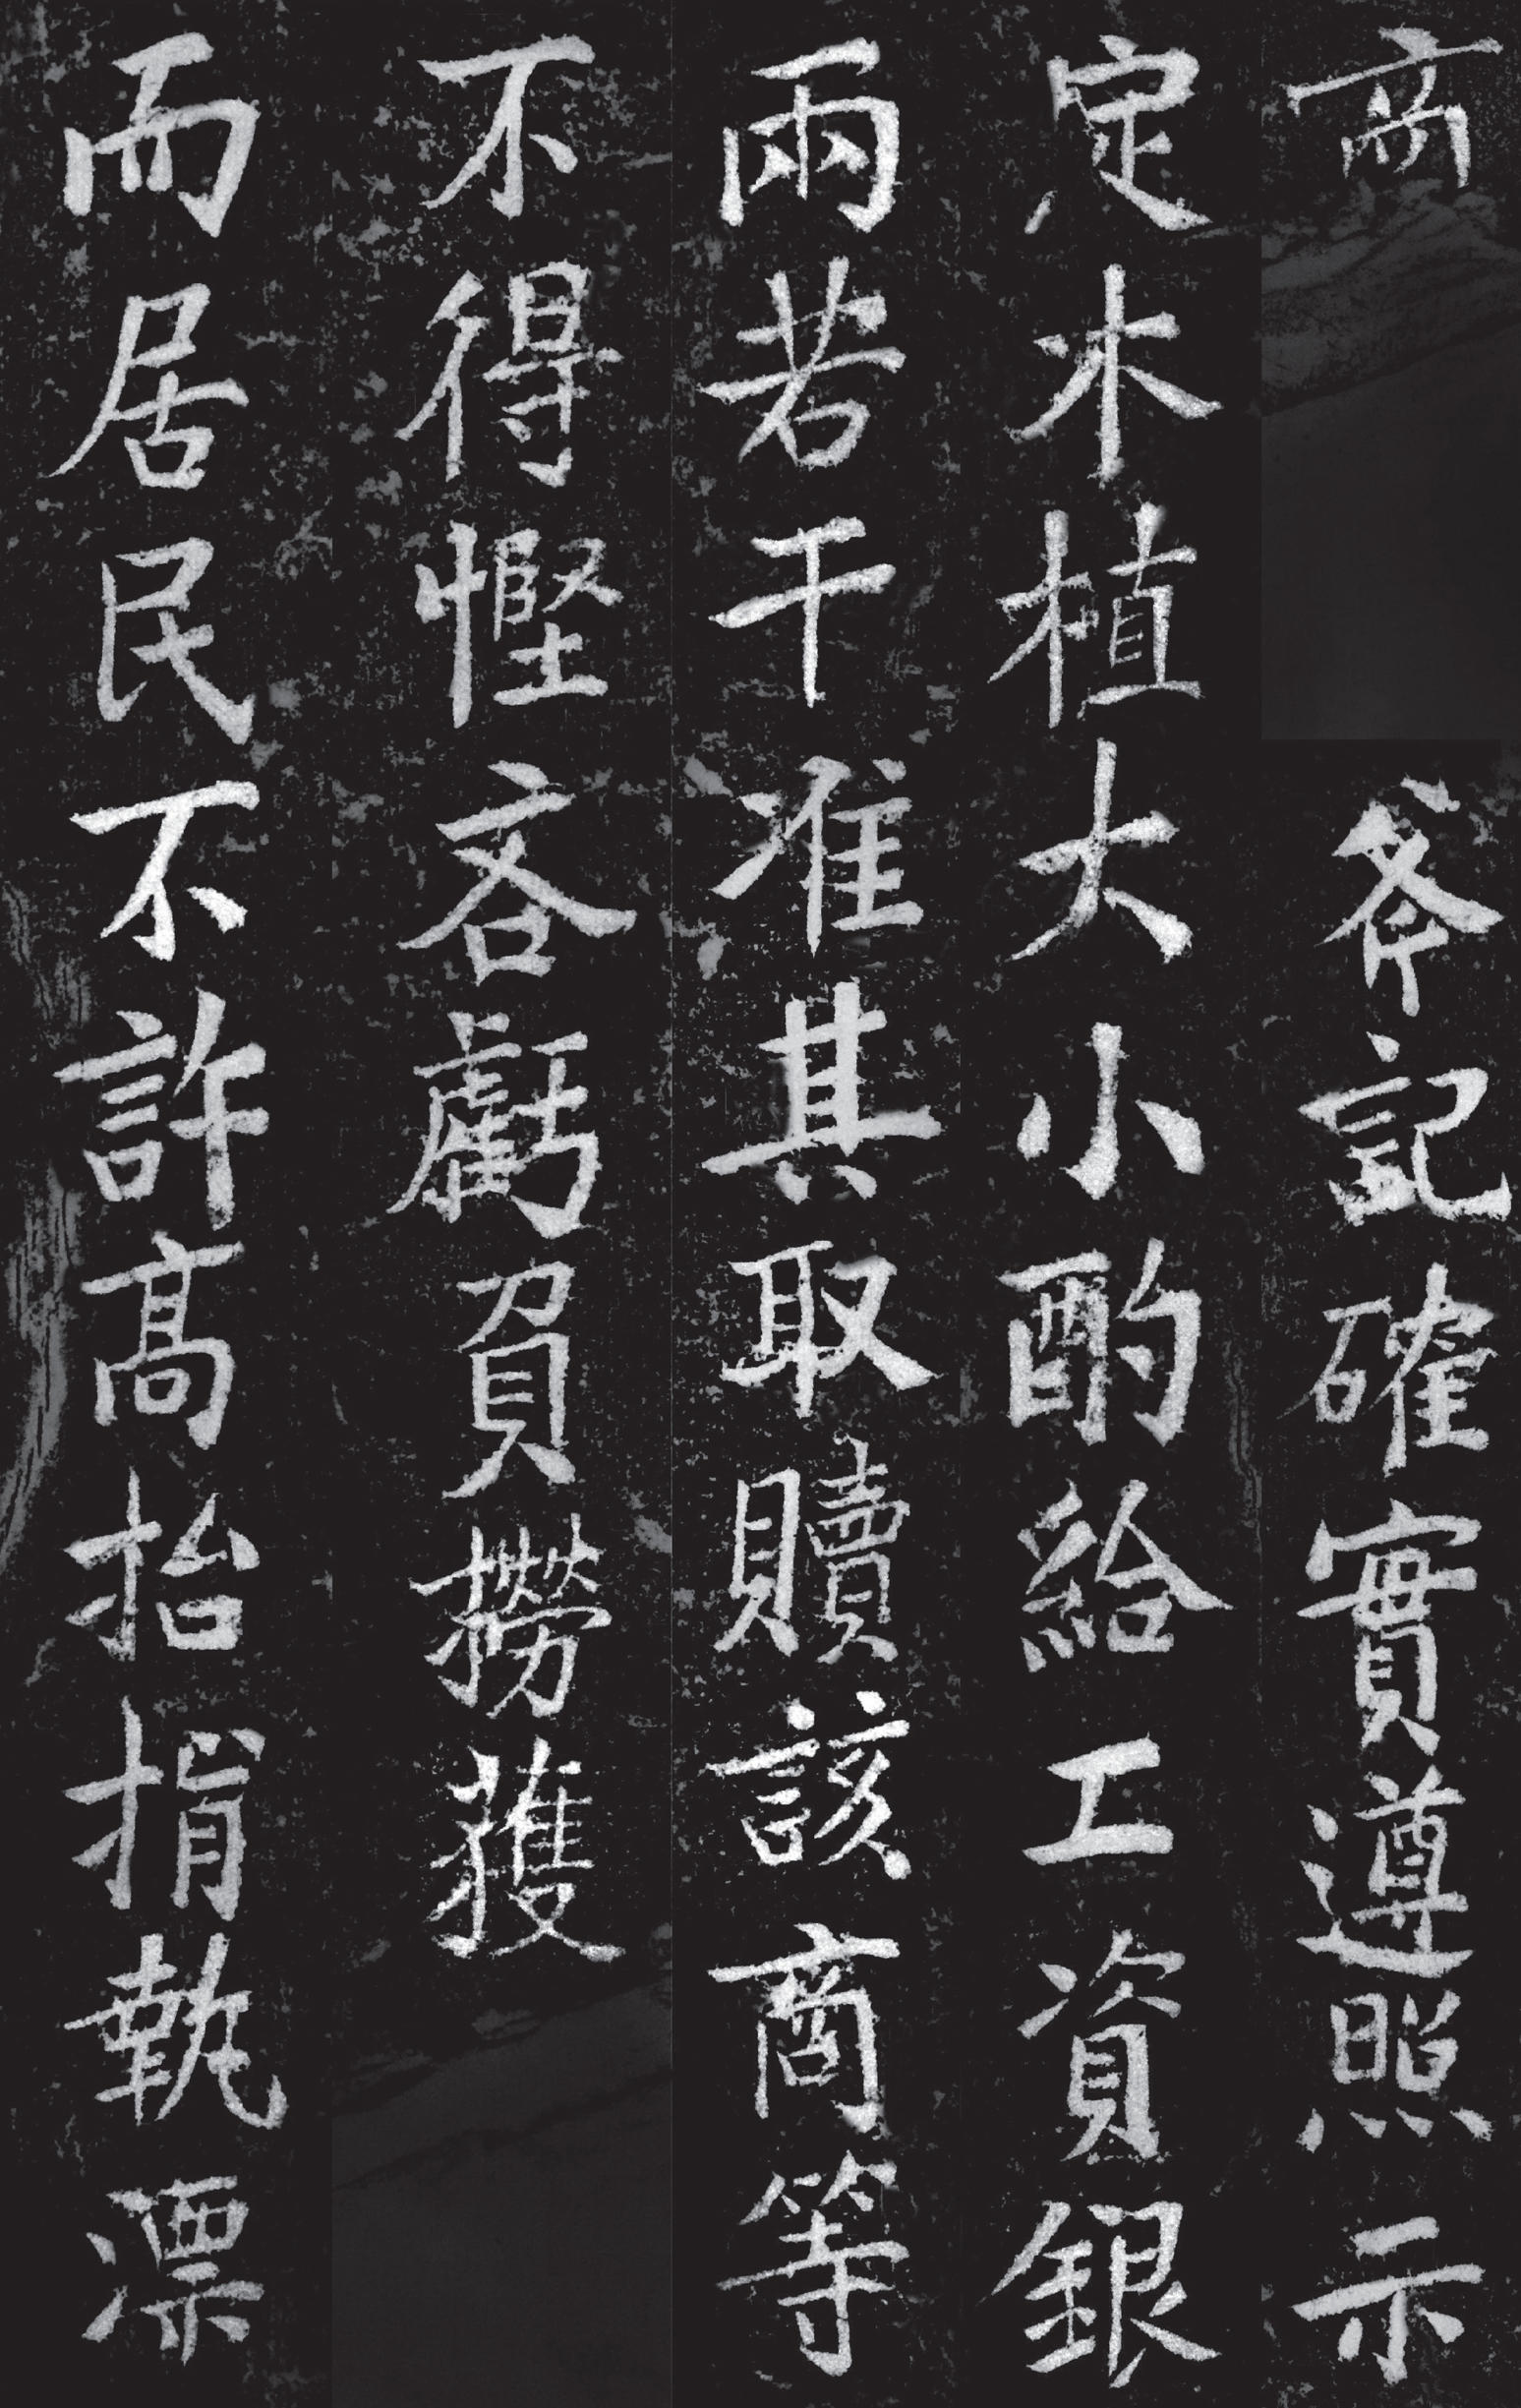 商
斧記確實遵照示
定木植大小酌給工資銀
兩若干准其取贖該商等
不得慳吝虧負撈獲
而居民不許高抬掯執漂